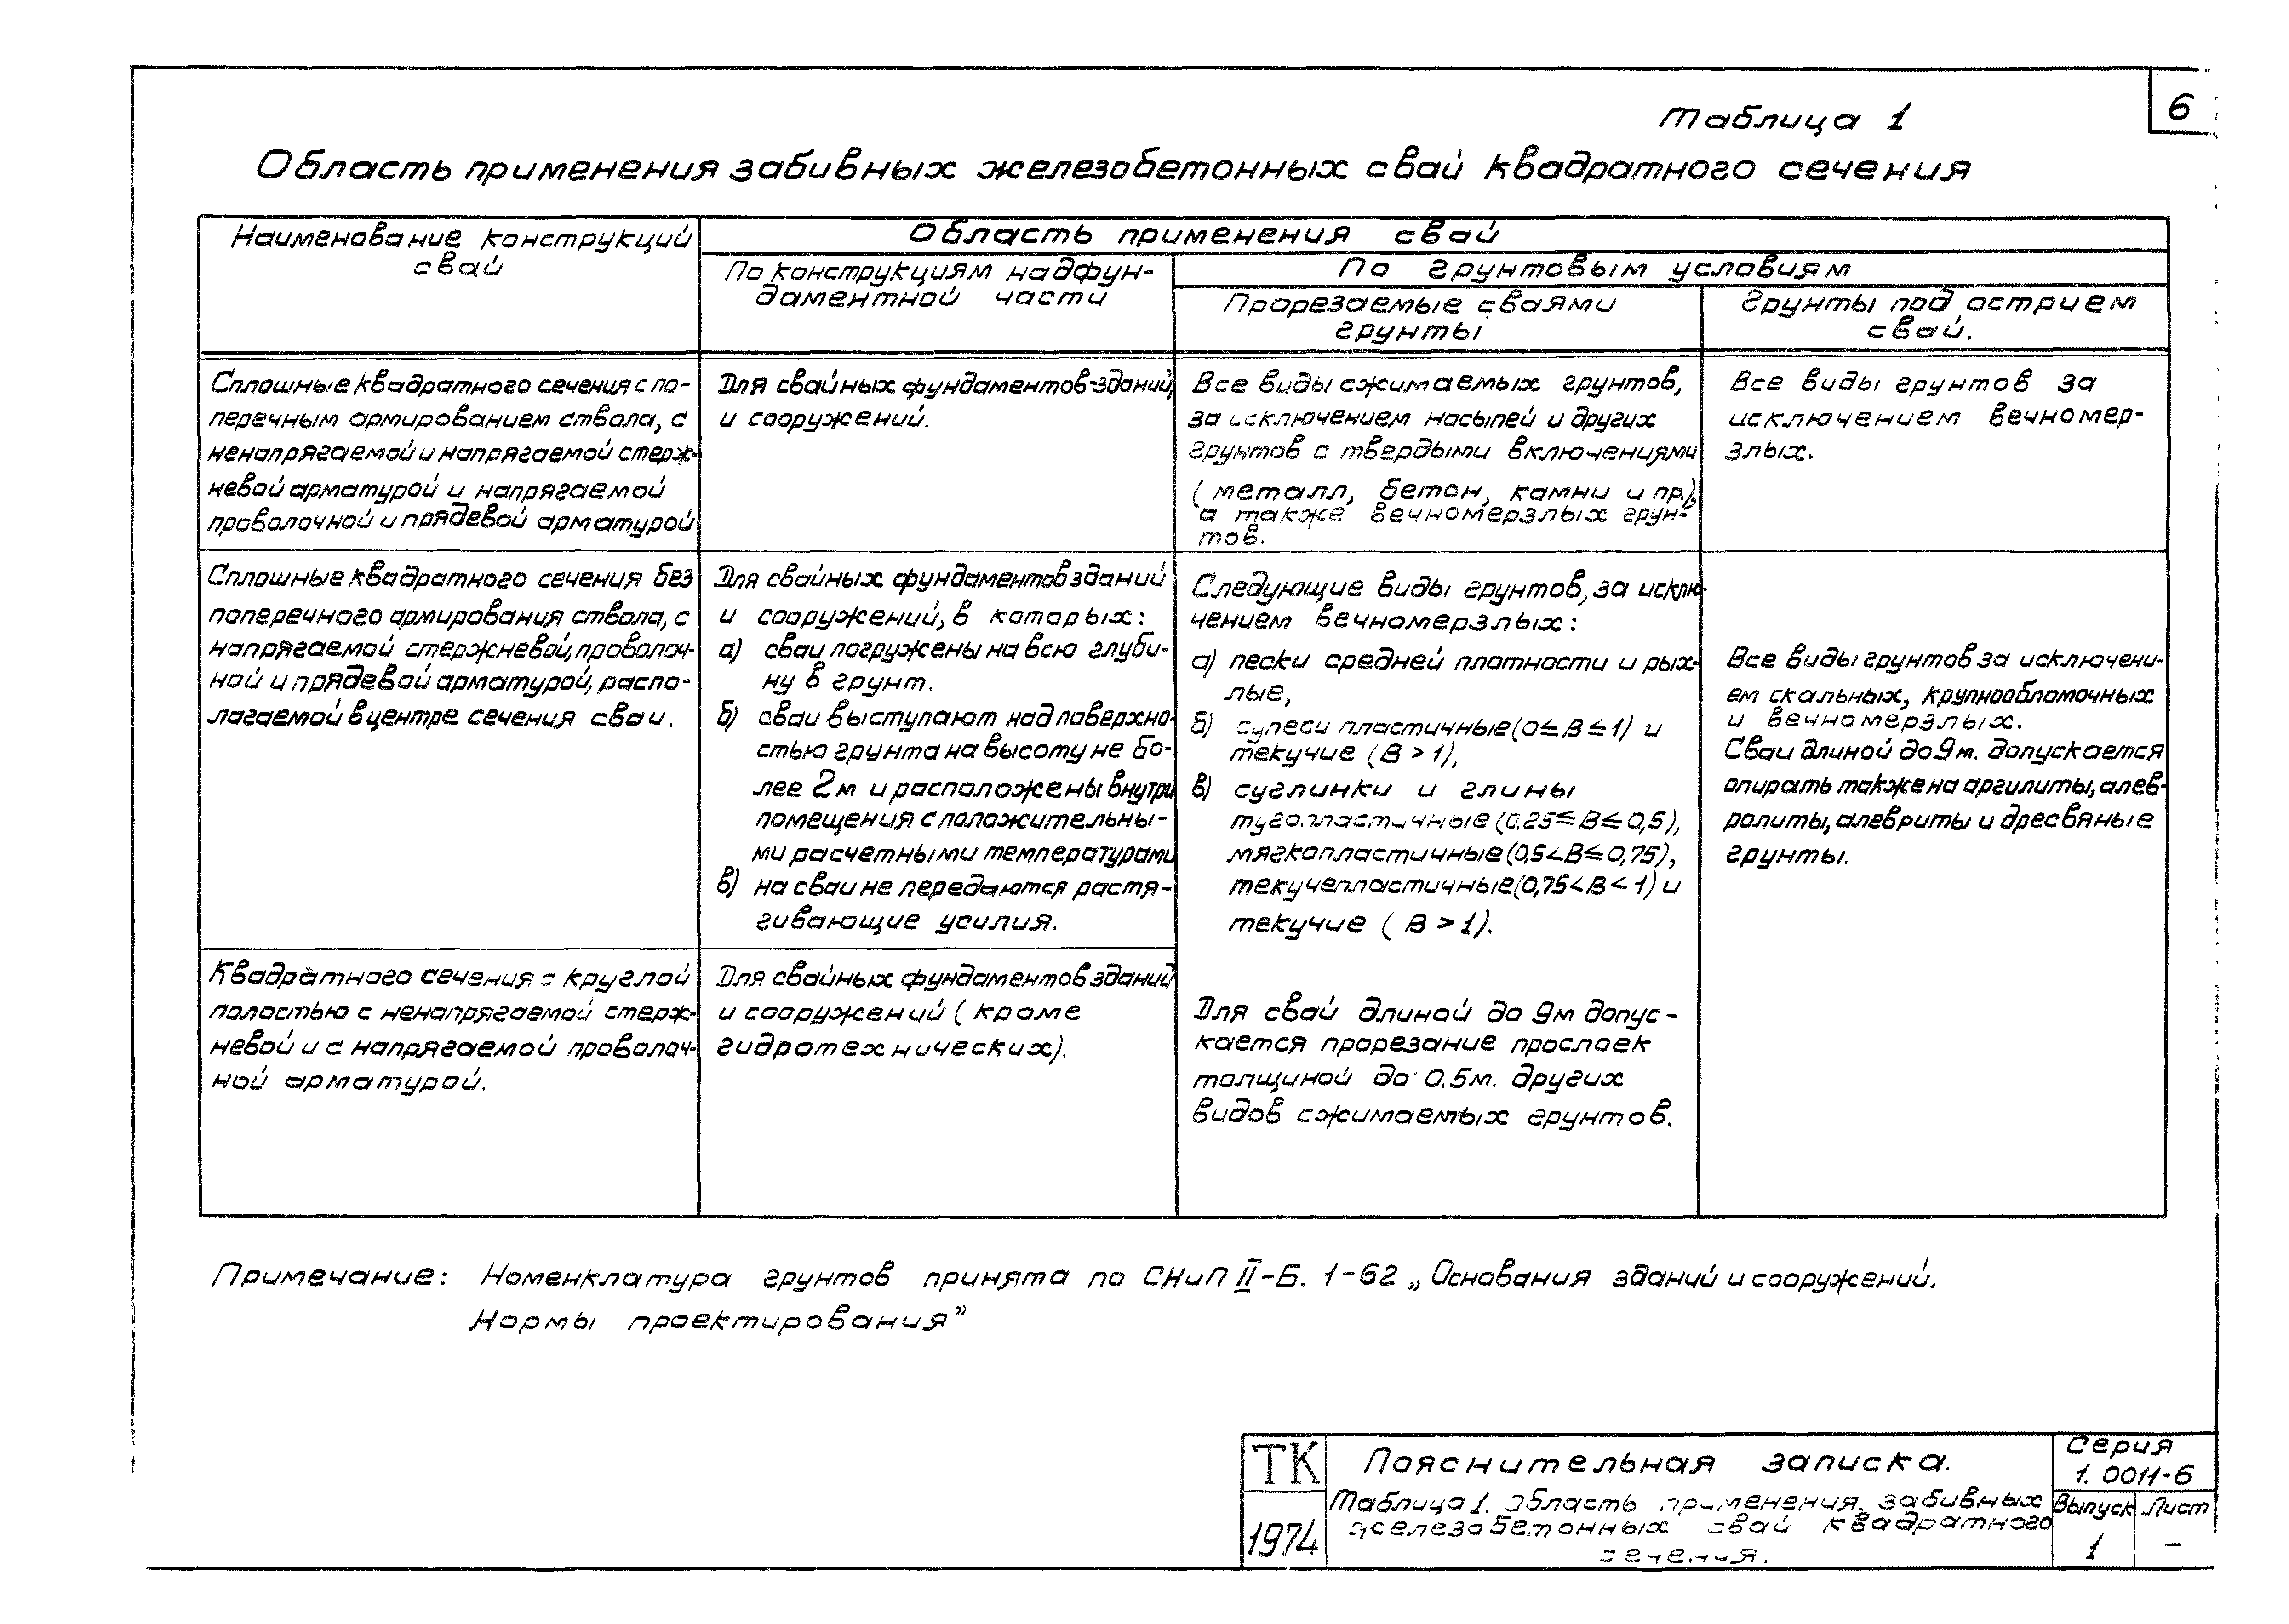 6
Таблица 1
Область применения забивных железобетонных свай квадратного сечения
Наименование конструкций
свай
Область применения свай
По конструкциям надфун-
даментной части
По грунтовым условиям
Прорезаемые сваями
грунты
Грунты под острием
свай.
Сплошные квадратного сечения с по-
перечным армированием ствола, с
ненапрягаемой и напрягаемой стерж-
невой арматурой и напрягаемой
проволочной и прядевой арматурой
Для свайных фундаментов зданий
и сооружений.
Все виды сжимаемых грунтов,
за исключением насыпей и других
грунтов с твердыми включениями
(металл, бетон, камни и пр.),
а также вечномерзлых грун-
тов.
Все виды грунтов за
исключением вечномер-
злых.
Сплошные квадратного сечения без
поперечного армирования ствола, с
напрягаемой стержневой, проволоч-
ной и прядевой арматурой, распо-
лагаемой в центре сечения сваи.
Для свайных фундаментов зданий
и сооружений, в которых:
а) сваи погружены на всю глуби-
ну в грунт.
б) сваи выступают над поверхно-
стью грунта на высоту не бо-
лее 2м и расположены внутри
помещения с положительны-
ми расчетными температурами
в) на сваи не передаются растя-
гивающие усилия.
Следующие виды грунтов, за исклю-
чением вечномерзлых:
а) пески средней плотности и рых-
лые,
б) супеси пластичные (0≤В≤1) и
текучие (В>1),
в) суглинки и глины
тугопластичные (0.25≤В≤0,5),
мягкопластичные (0,5<В≤0,75),
текучепластичные (0,75<В<1) и
текучие (В>1).
Для свай длиной до 9м допус-
кается прорезание прослоек
толщиной до 0.5м. других
видов сжимаемых грунтов.
Все виды грунтов за исключени-
ем скальных, крупнообломочных
и вечномерзлых.
Сваи длиной до 9м. допускается
опирать также на аргилиты, алев-
ролиты, алевриты и дресвяные
грунты.
Квадратного сечения с круглой
полостью с ненапрягаемой стерж-
невой и с напрягаемой проволоч-
ной арматурой.
Для свайных фундаментов зданий
и сооружений (кроме
гидротехнических).
Примечание: Номенклатура грунтов принята по СНиП II-Б. 1-62 „Основания зданий и сооружений.
Нормы проектирования”
ТК
1974
Пояснительная записка.
Таблица 1. Область применения забивных
железобетонных свай квадратного
сечения.
Серия
1.0011-6
Выпуск
1
Лист
–